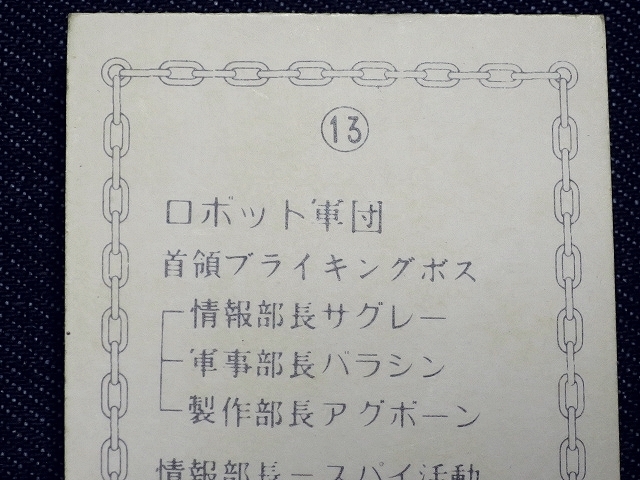 ⑬
ロボット軍団
首領ブライキングボス
情報部長サグレー
軍事部長バラシン
製作部長アグボーン
情報部長－スパイ活動